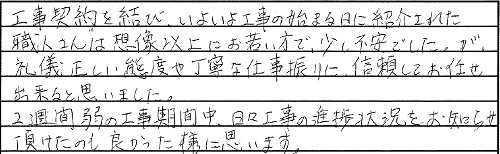 工事契約を結び、いよいよ工事の始まる日に紹介された
職人さんは想像以上にお若い方で、少し不安でした。が、
礼儀正しい態度や丁寧な仕事振りに、信頼してお任せ
出来ると思いました。
2週間弱の工事期間中、日々工事の進捗状況をお知らせ
頂けたのも良かった様に思います。